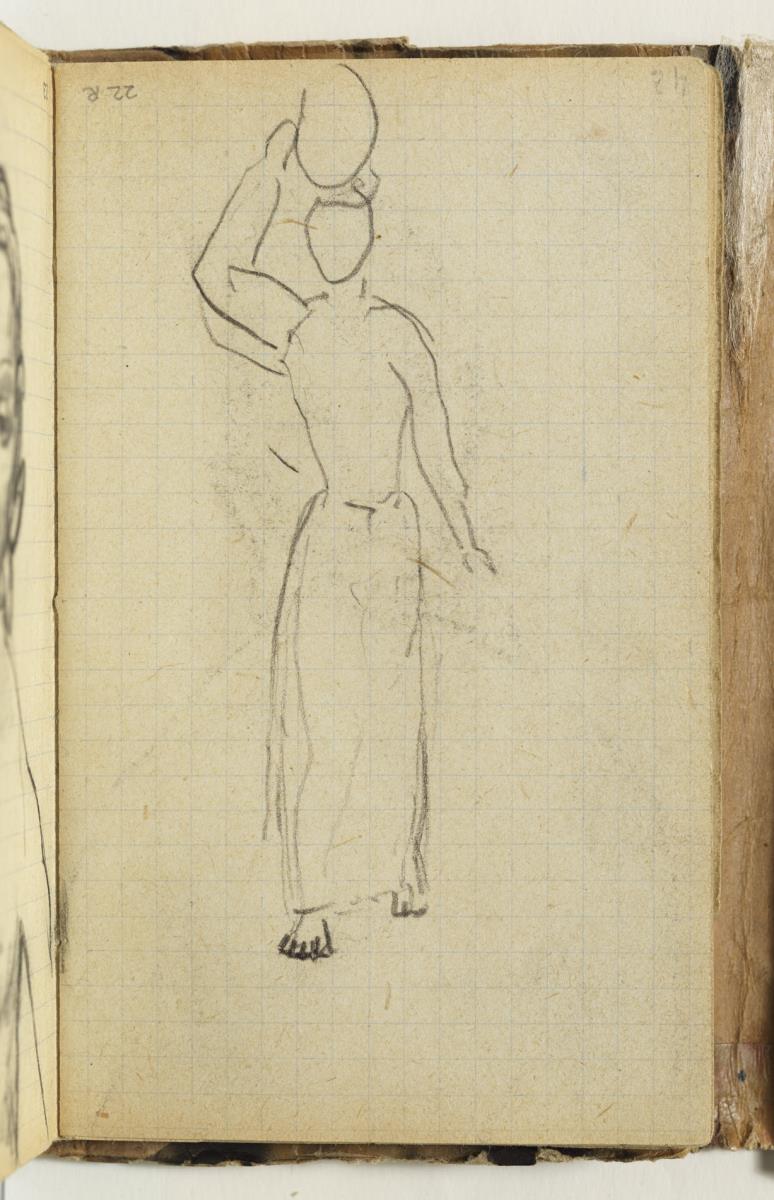 22 R
48